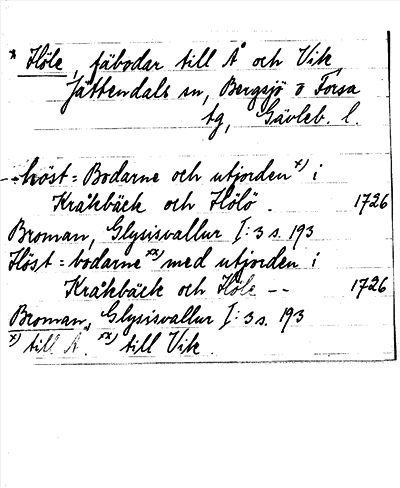 * Höle, fäbodar till Å och Vik
Jättendals sn, Bergsjö o Forsa
tg, Gävleb. l.
-- höst = Bodarne och utjorden x) i
Kråkbäck och Hölö. 1726
Broman, Glysisvallur I: 3 s. 193
Höst = bodarne xx) med utjorden i
Kråkbäck och Höle -- 1726
Broman, Glysisvallur I: 3 s. 193
x) till Å. xx) till Vik.